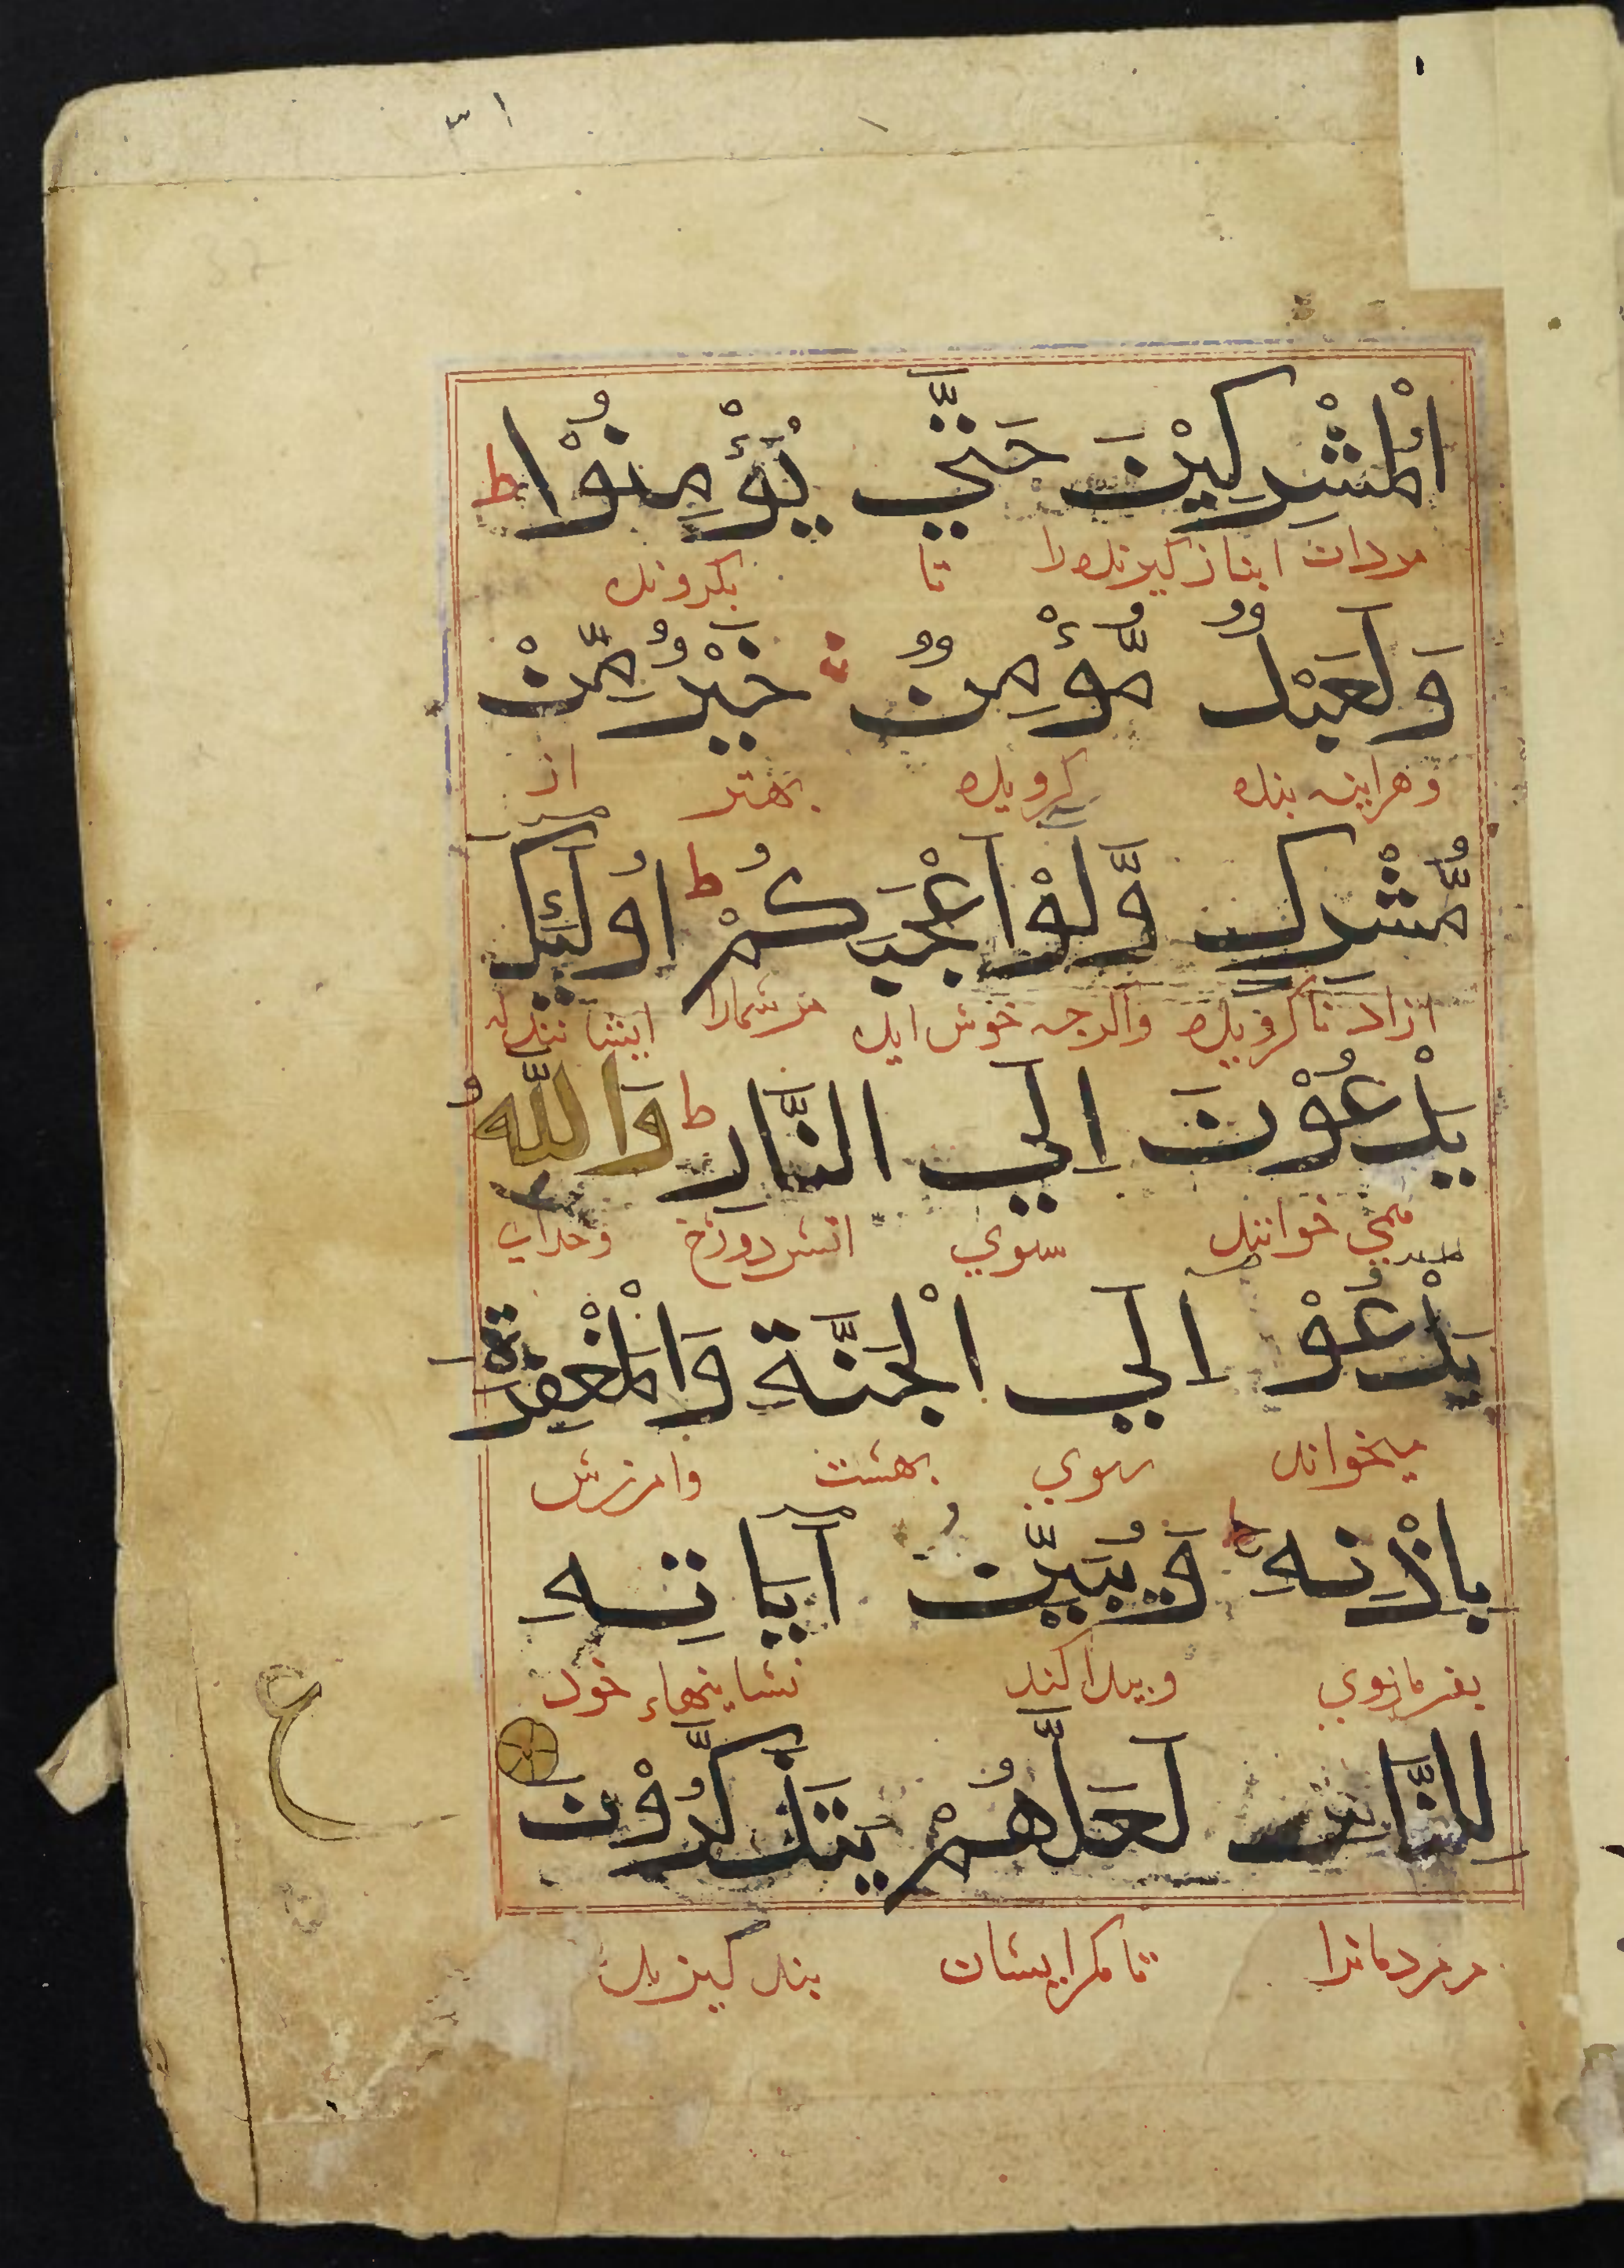 ٣١
الْمُشْرِكِيْنَ حَتّٰي يُؤْمِنُوْا ط
مردان انباز كيرنده را تا بكروند
وَلَعَبْدٌ مُّؤْمِنٌ خَيْرٌ مِّنْ
وهراينه بنده كرويده بهتر از
مُّشْرِكٍ وَّلَوْ اَعْجَبَكُمْ ط اُولٰٓئِكَ
ازاد ناكرويده واكرجه خوش ايد مر شمارا
يَدْعُوْنَ اِلَي النَّارِ ط وَاللّٰهُ
مي خوانند سوي اتش دوزخ وخداي
يَدْعُوْ اِلَي الْجَنَّةِ وَالْمَغْفِرَةِ
ميخواند سوي بهشت وامرزش
بِاِذْنِهٖ ط وَيُبَيِّنُ آيَاتِهِ
بفرمان وي وبيدا كند نشانيهاء خود
لِلنَّاسِ لَعَلَّهُمْ يَتَذَكَّرُوْنَ
ع
مر مردمانرا تا مكر ايشان بند كيرند